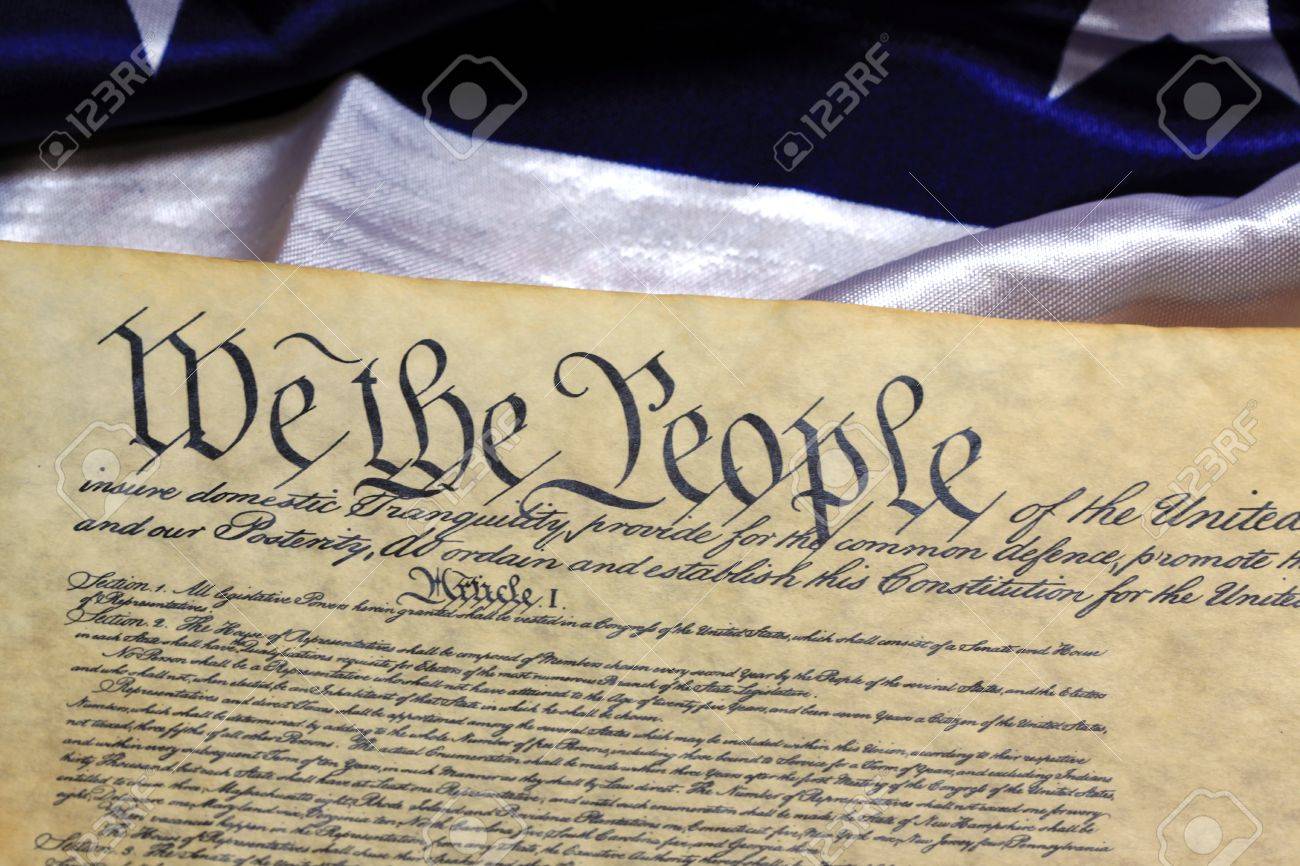 We the People of the United
insure domestic Tranquility, provide for the common defence, promote th
and our Posterity, do ordain and establish this Constitution for the Unite
Article I.
Section. 1. All legislative Powers herein granted shall be vested in a Congress of the United States, which shall consist of a Senate and House
of Representatives.
Section. 2. The House of Representatives shall be composed of Members chosen every second Year by the People of the several States, and the Electors
in each State shall have Qualifications requisite for Electors of the most numerous Branch of the State Legislature.
No Person shall be a Representative who shall not have attained to the Age of twenty five Years, and been seven Years a Citizen of the United States,
and who shall not, when elected, be an Inhabitant of that State in which he shall be chosen.
Representatives and direct Taxes shall be apportioned among the several States which may be included within this Union, according to their respective
Numbers, which shall be determined by adding to the whole Number of free Persons, including those bound to Service for a Term of Years, and excluding Indians
not taxed, three fifths of all other Persons. The actual Enumeration shall be made within three Years after the first Meeting of the Congress of the United States,
and within every subsequent Term of ten Years, in such Manner as they shall by Law direct. The Number of Representatives shall not exceed one for every
thirty Thousand, but each State shall have at Least one Representative; and until such enumeration shall be made, the State of New Hampshire shall be
entitled to chuse three, Massachusetts eight, Rhode Island and Providence Plantations one, Connecticut five, New York six, New Jersey four, Pennsylvania
eight, Delaware one, Maryland six, Virginia ten, North Carolina five, South Carolina five, and Georgia three.
vacancies happen in the Representation from any State, the Executive Authority
House of Representatives shall chuse their Speaker
Section. 3. The Senate of the United
123RF
123RF
123RF
123RF
123RF
123RF